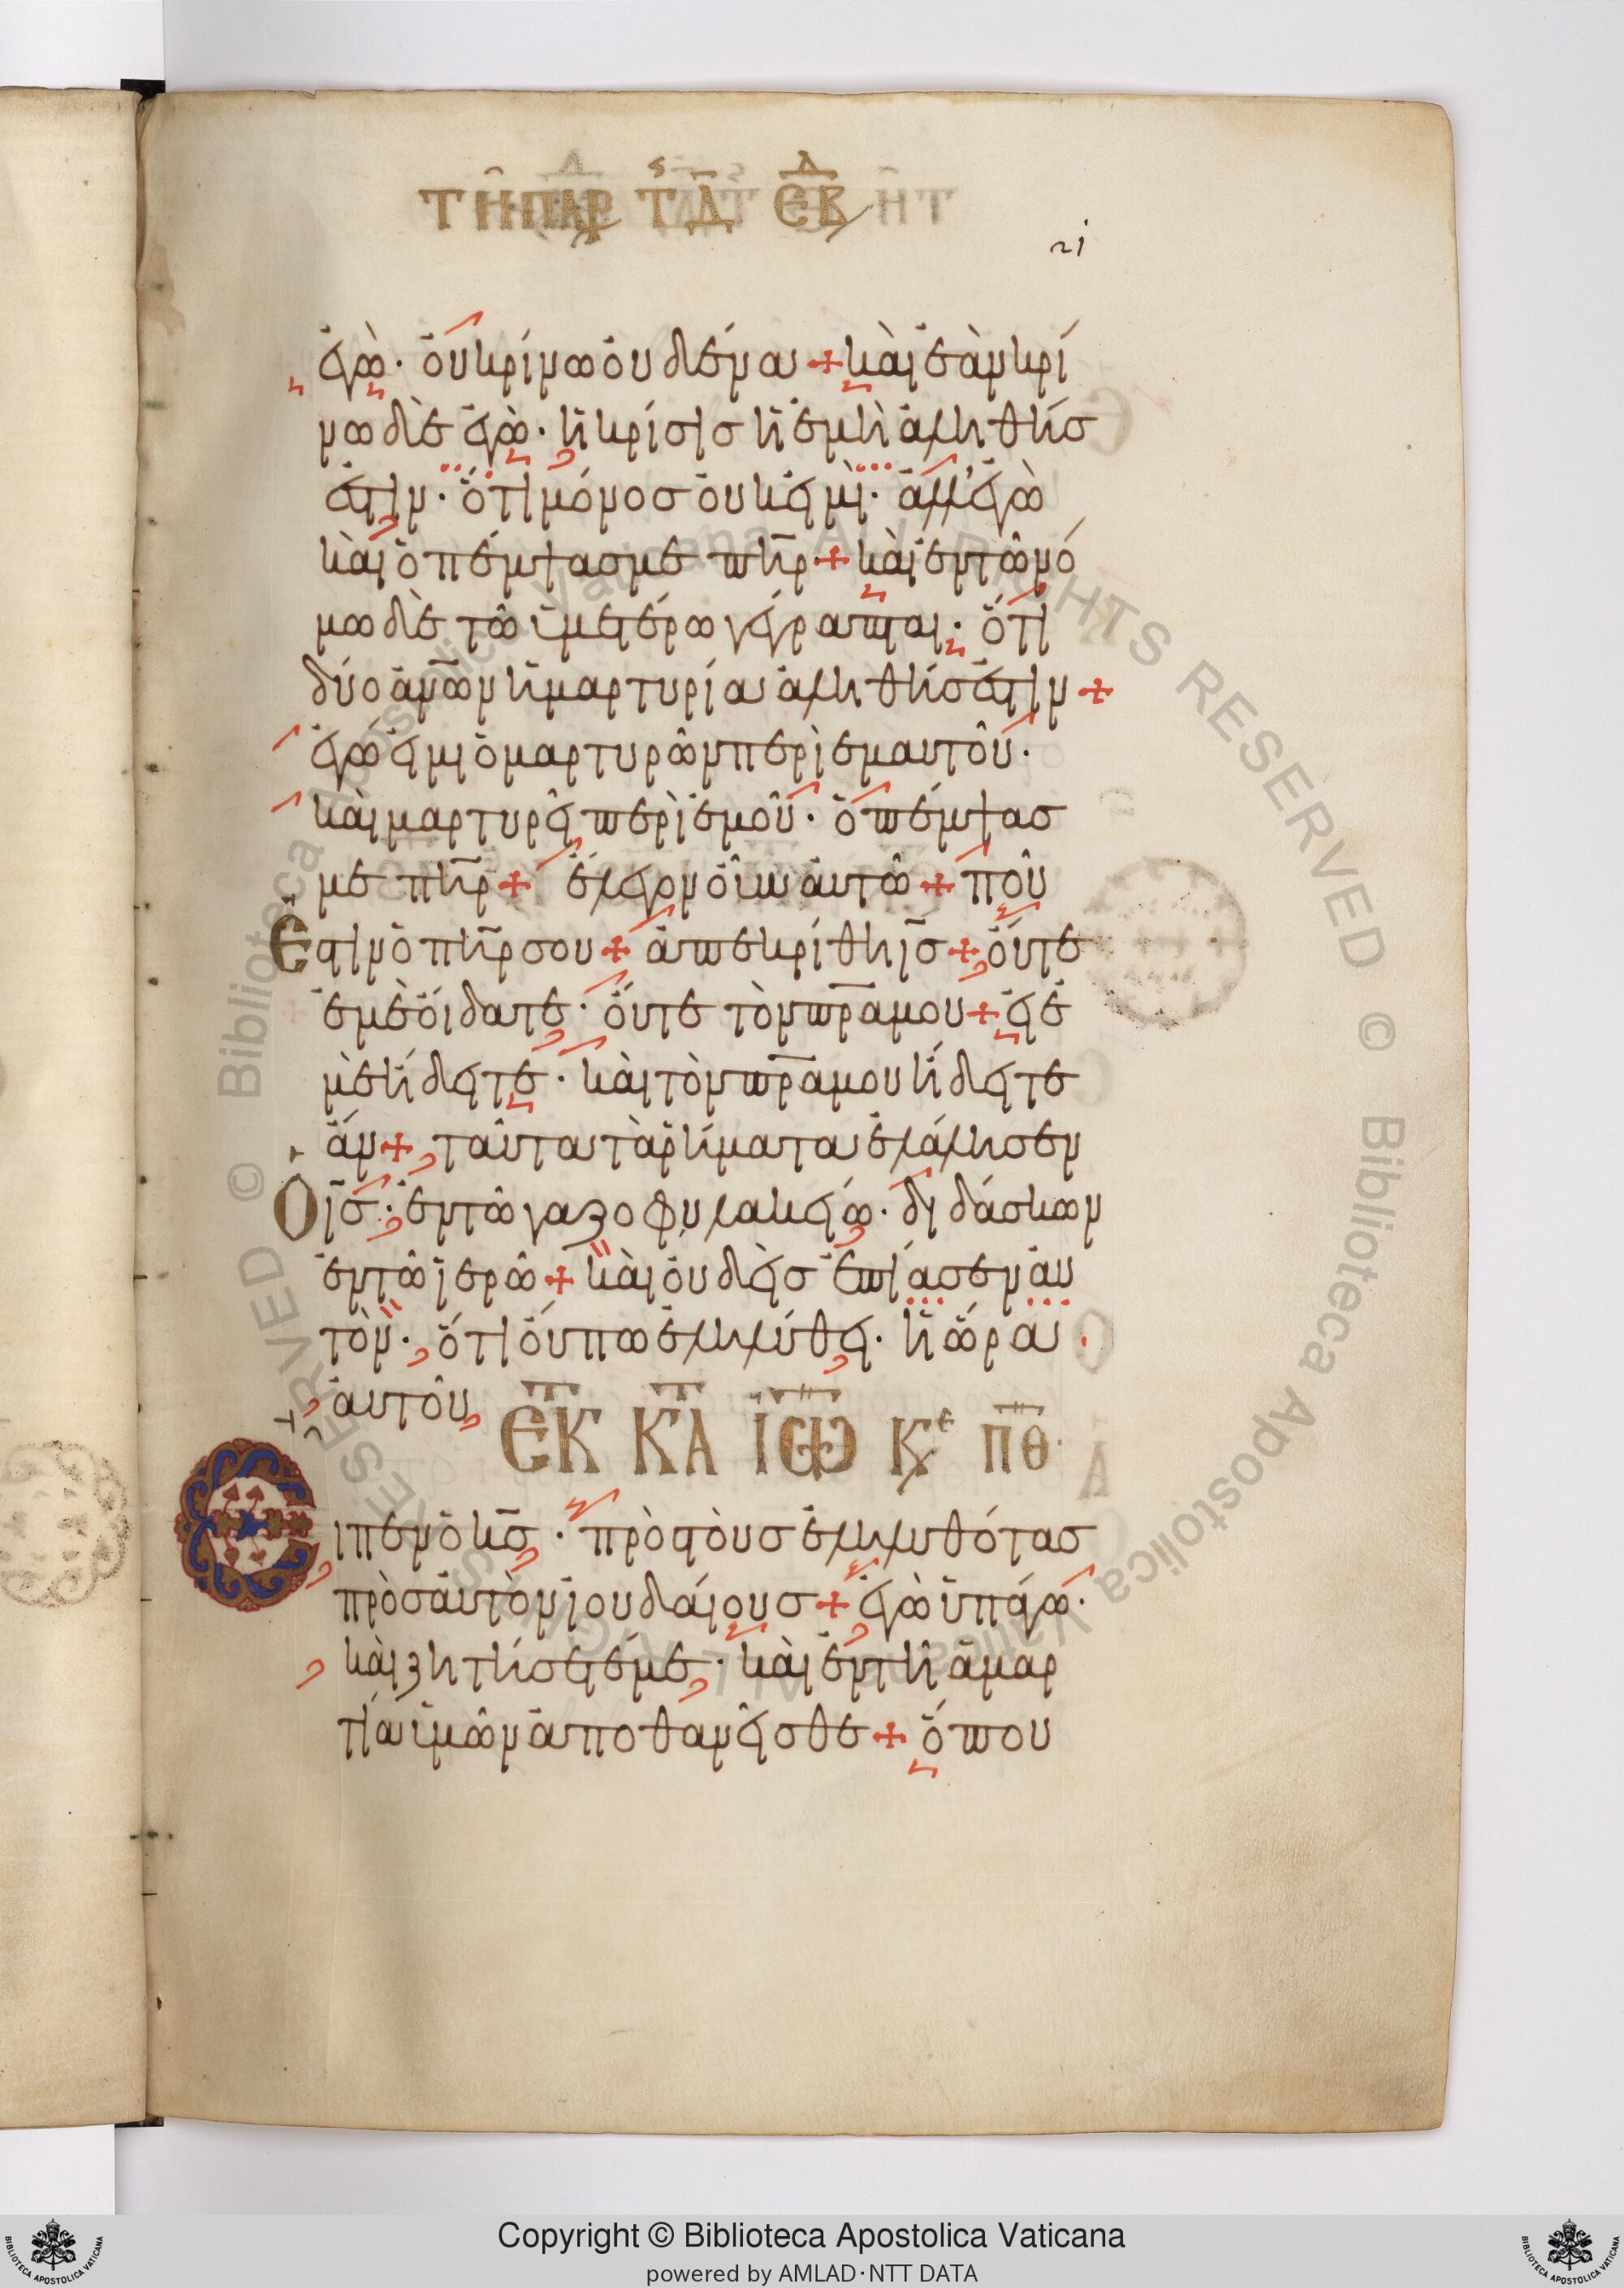 ΤΗ ΠΑΡ Τ Δ ΕΒΔ
21
ἐγὼ· οὐ κρίνω οὐδένα + καὶ ἐὰν κρί
νω δὲ ἐγὼ· ἡ κρίσις ἡ ἐμὴ ἀληθής
ἐστιν· ὅτι μόνος οὐκ εἰμὶ· ἀλλ' ἐγὼ
καὶ ὁ πέμψας με πηρ + καὶ ἐν τῶ νό
μω δὲ τῶ ὑμετέρω γέγραπται· ὅτι
δύο ἀνων ἡ μαρτυρία ἀληθής ἐστιν +
ἐγώ εἰμι ὁ μαρτυρῶν περὶ ἐμαυτοῦ·
καὶ μαρτυρεῖ περὶ ἐμοῦ· ὁ πέμψας
με πηρ + ἔλεγον οὖν αὐτῶ + ποῦ
Εστιν ὁ πηρ σου + ἀπεκρίθη ις + οὔτε
ἐμὲ οἴδατε· οὔτε τὸν πρα μου + εἰ ἐ
μὲ ἤδειτε· καὶ τὸν πρα μου ἤδειτε
ἄν + ταῦτα τὰ ῥήματα ἐλάλησεν
Ο ις· ἐν τῶ γαζοφυλακείω· διδάσκων
ἐν τῶ ἱερῶ + καὶ οὐδεὶς ἐπίασεν αὐ
τὸν· ὅτι οὔπω ἐληλύθει· ἡ ὥρα
αὐτοῦ
ΕΚ ΚΑ ΙΩ ΚΕ ΠΘ
Ειπεν ὁ κς· πρὸς τοὺς ἐληλυθότας
πρὸς αὐτὸν ἰουδαίους + ἐγὼ ὑπάγω·
καὶ ζητήσετέ με· καὶ ἐν τῆ ἁμαρ
τία ὑμῶν ἀποθανεῖσθε + ὅπου
© Biblioteca Apostolica Vaticana ALL RIGHTS RESERVED © Biblioteca Apostolica Vaticana ALL RIGHTS RESERVED
Copyright © Biblioteca Apostolica Vaticana
powered by AMLAD·NTT DATA
BIBLIOTECA APOSTOLICA VATICANA
BIBLIOTECA APOSTOLICA VATICANA